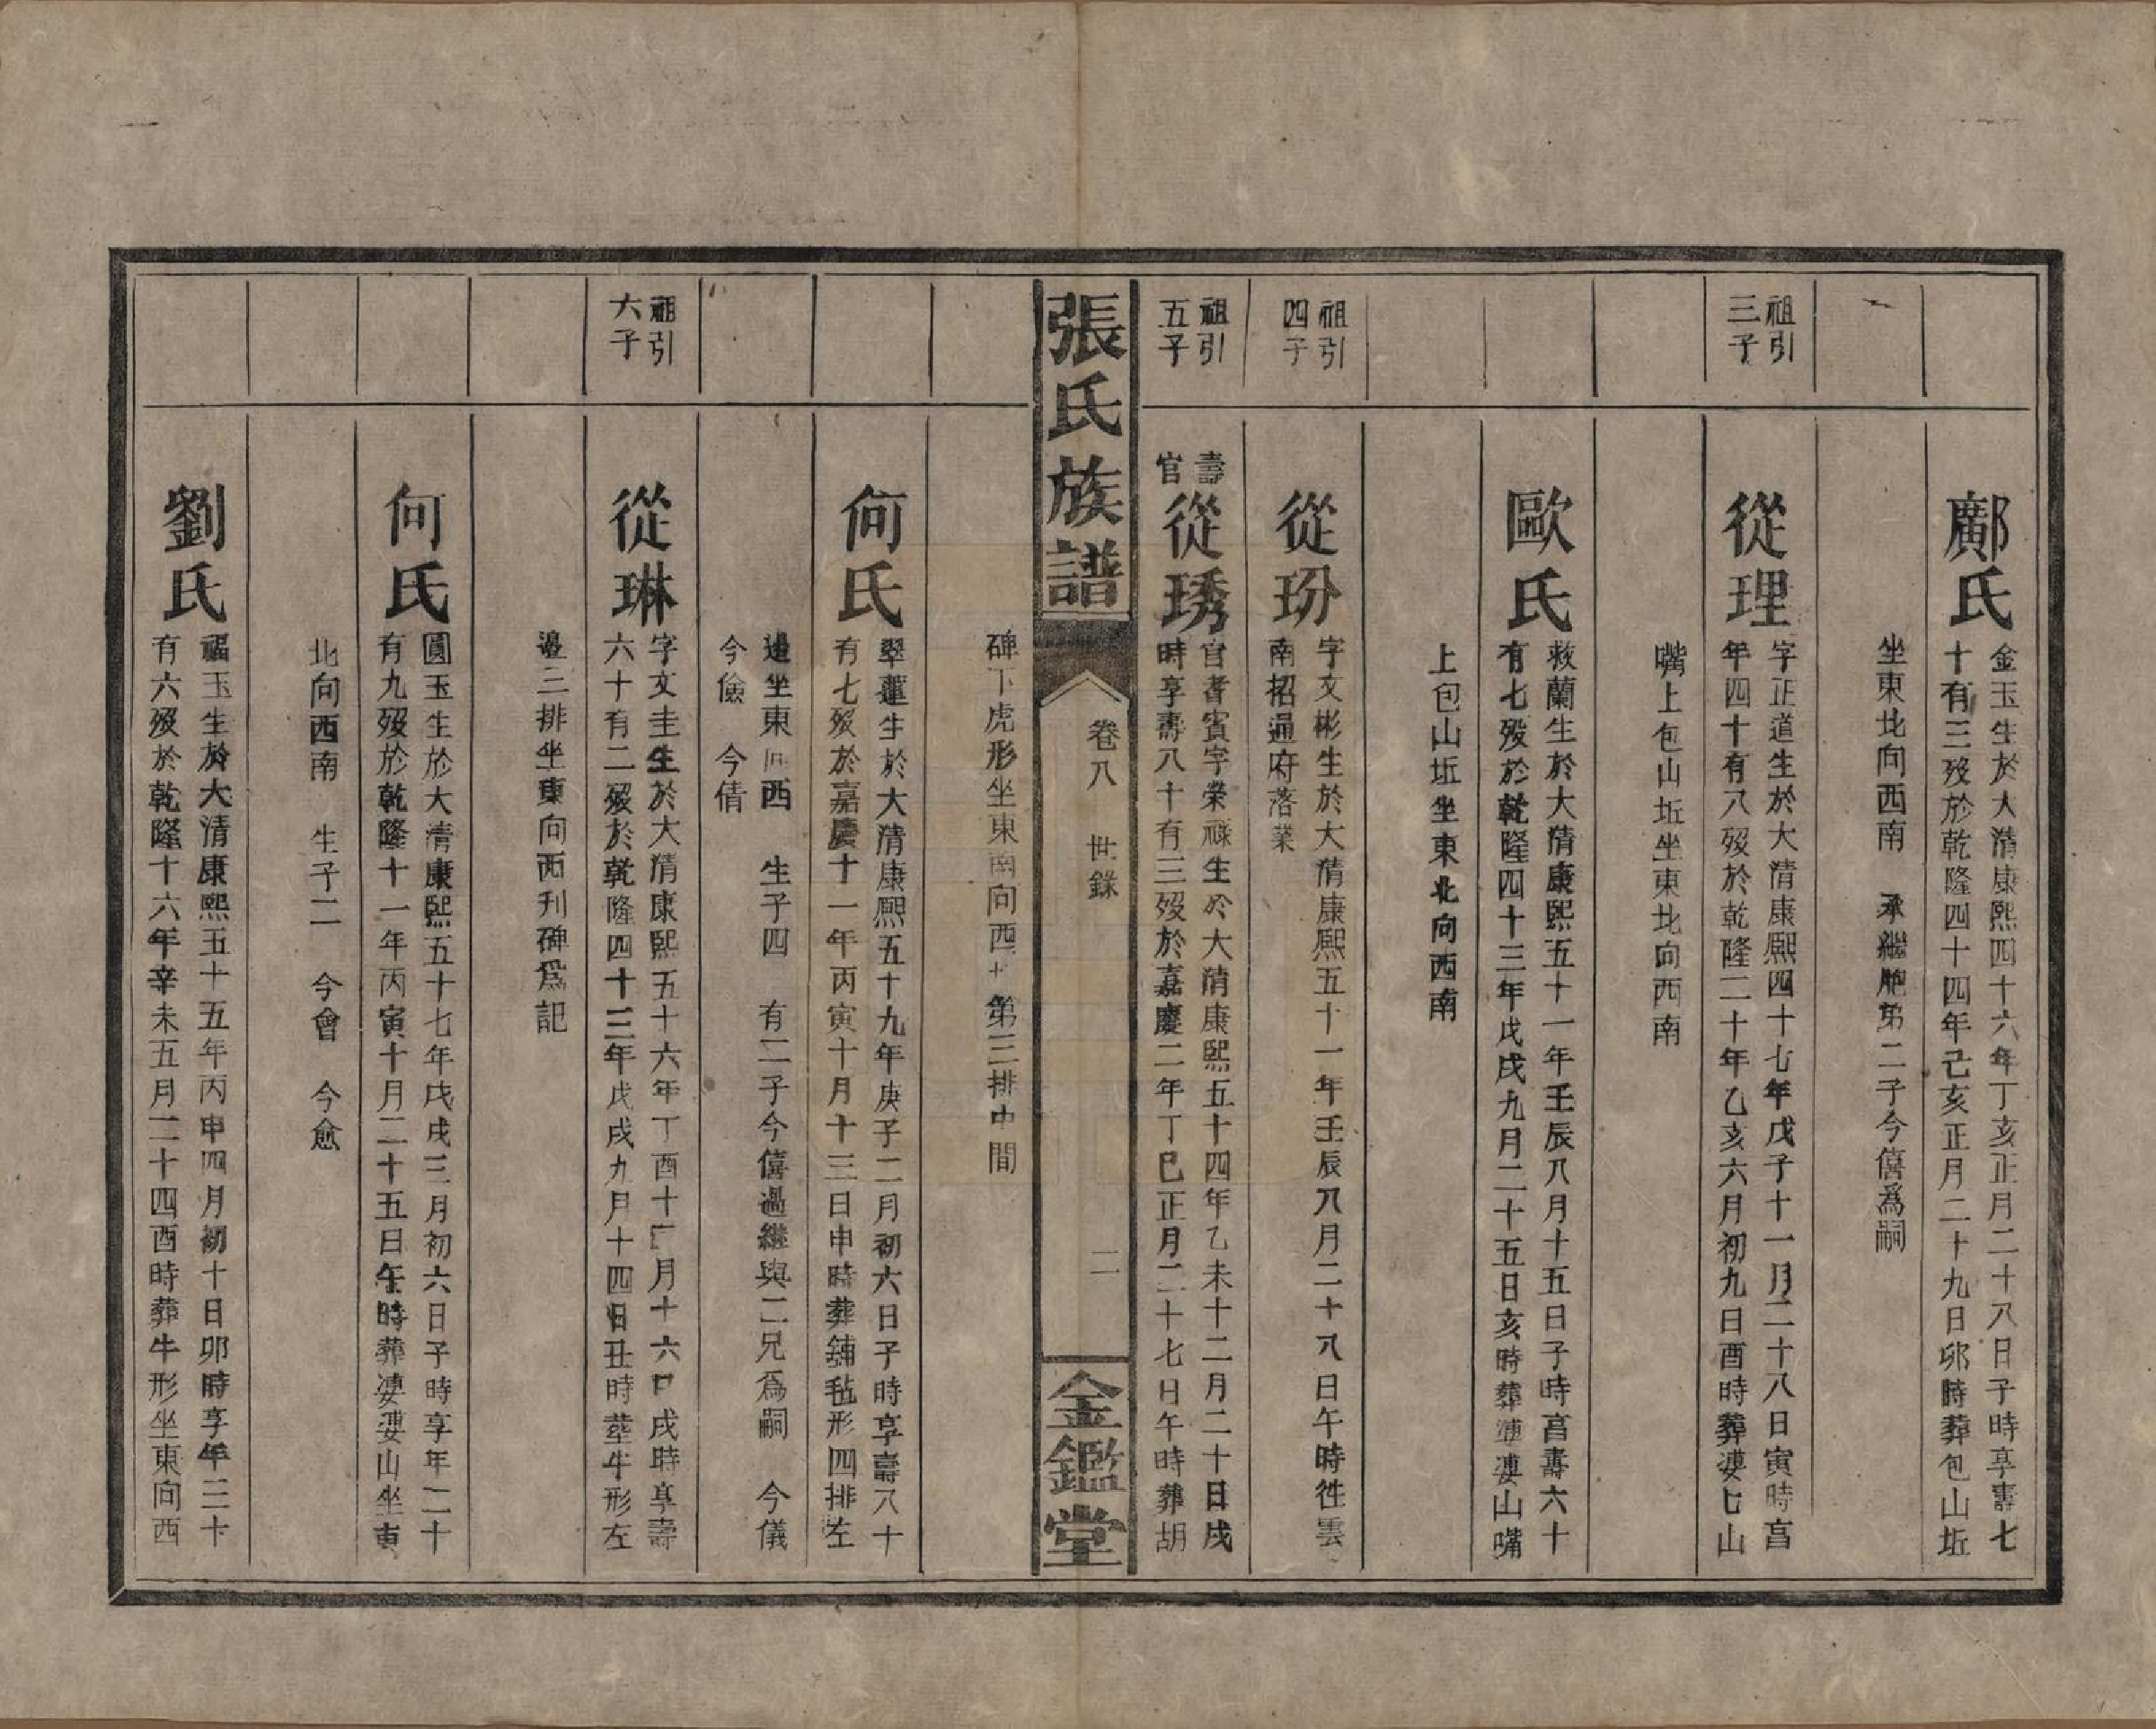 鄺氏
金玉生於大清康熙四十六年丁亥正月二十八日子時享壽七
十有三歿於乾隆四十四年己亥正月二十九日卯時葬包山坵
坐東北向西南 承繼胞弟二子今僖爲嗣
祖引
三子
從理
字正道生於大清康熙四十七年戊子十一月二十八日寅時亯
年四十有八歿於乾隆二十年乙亥六月初九日酉時葬婁七山
嘴上包山坵坐東北向西南
歐氏
救蘭生於大清康熙五十一年壬辰八月十五日子時亯壽六十
有七歿於乾隆四十三年戊戌九月二十五日亥時葬漊漊山嘴
上包山坵坐東北向西南
祖引
四子
從玢
字文彬生於大清康熙五十一年壬辰八月二十八日午時徃雲
南招通府落業
祖引
五子
壽
官
從琇
官耆賓字榮祿生於大清康熙五十四年乙未十二月二十日戌
時享壽八十有三歿於嘉慶二年丁巳正月二十七日午時葬胡
張氏族譜
卷八 世錄
二
金鑑堂
碑下虎形坐東南向西 第三排中間
何氏
翠蓮生於大清康熙五十九年庚子二月初六日子時享壽八十
有七歿於嘉慶十一年丙寅十月十三日申時葬鋪毡形四排左
邊坐東向西 生子四 有二子今僖過繼與二兄爲嗣 今儀
今儉 今倩
祖引
六子
從琳
字文圭生於大清康熙五十六年丁酉十二月十六日戌時享壽
六十有二歿於乾隆四十三年戊戌九月十四日丑時塟牛形左
邊三排坐東向西刋碑爲記
何氏
圓玉生於大清康熙五十七年戊戌三月初六日子時享年二十
有九歿於乾隆十一年丙寅十月二十五日午時葬漊漊山坐東
北向西南 生子二 今會 今愈
劉氏
福玉生於大清康熙五十五年丙申四月初十日卯時享年三十
有六歿於乾隆十六年辛未五月二十四酉時葬牛形坐東向西